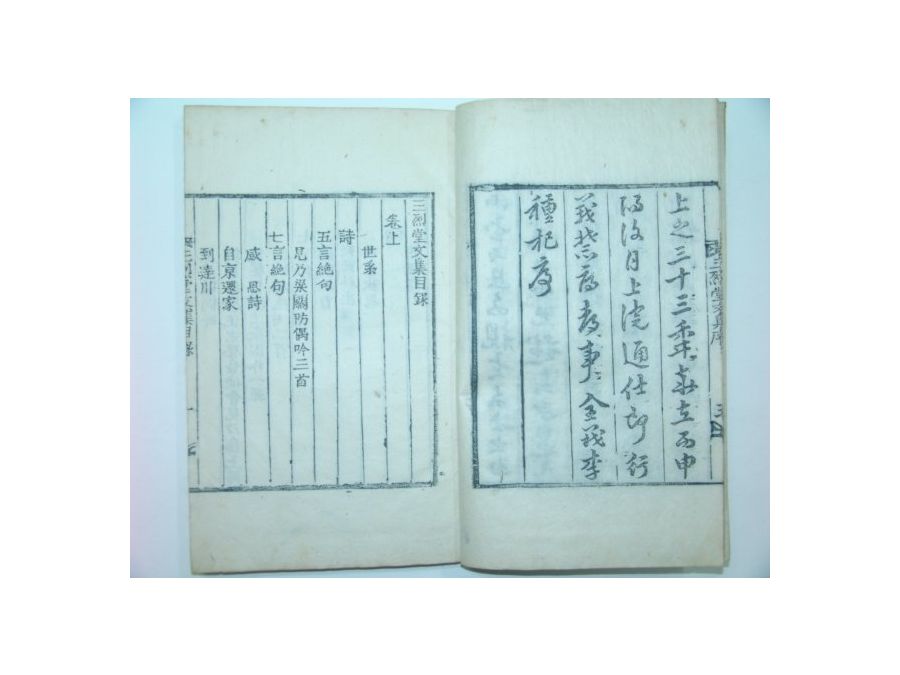 三烈堂文集序
三
上之三十三年歲在丙申
陽復月上浣通仕郎行
義禁府都事全義李
種杞序
三烈堂文集目錄
卷上
世系
詩
五言絶句
見乃梁關防偶吟三首
七言絶句
感 恩詩
自京還家
到達川
三烈堂文集目錄
一